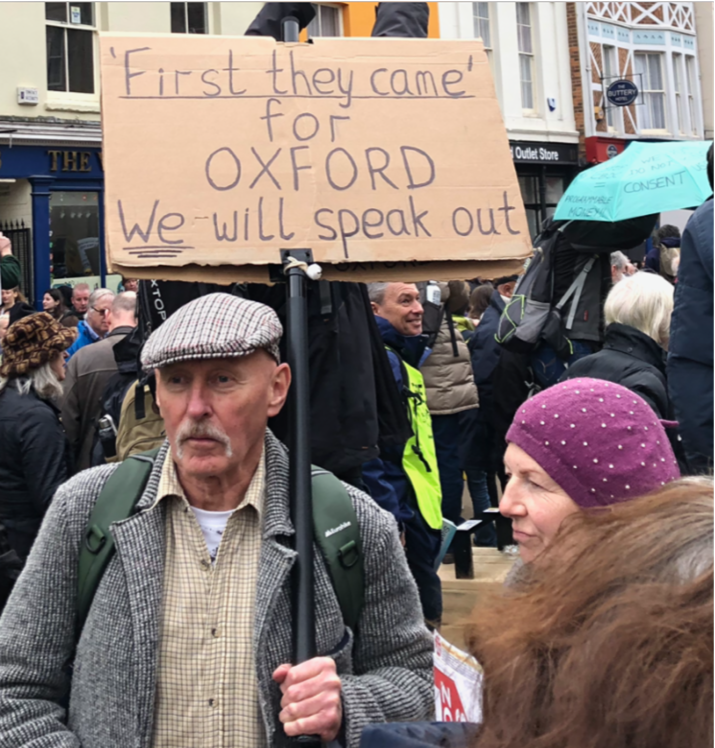 'First they came'
for
OXFORD
We will speak out
THE
Outlet Store
THE
BUTTERY
WE DO NOT
CONSENT